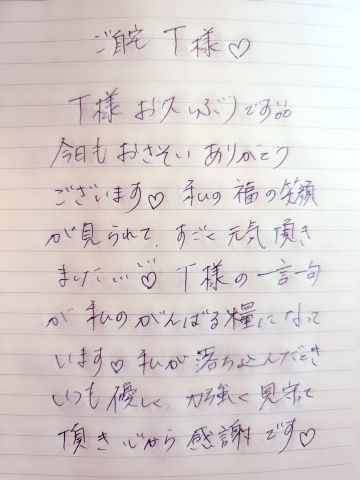 ご自宅 T様♡
T様 お久しぶりです
今日も おさそい ありがとう
ございます♡ 私の 福の笑顔
が見られて、すごく 元気 頂き
ました♡ T様の 一言一句
が 私の がんばる 糧になって
います♡ 私が 落ちこんだとき
いつも 優しく、力強く 見守って
頂き 心から 感謝 です♡